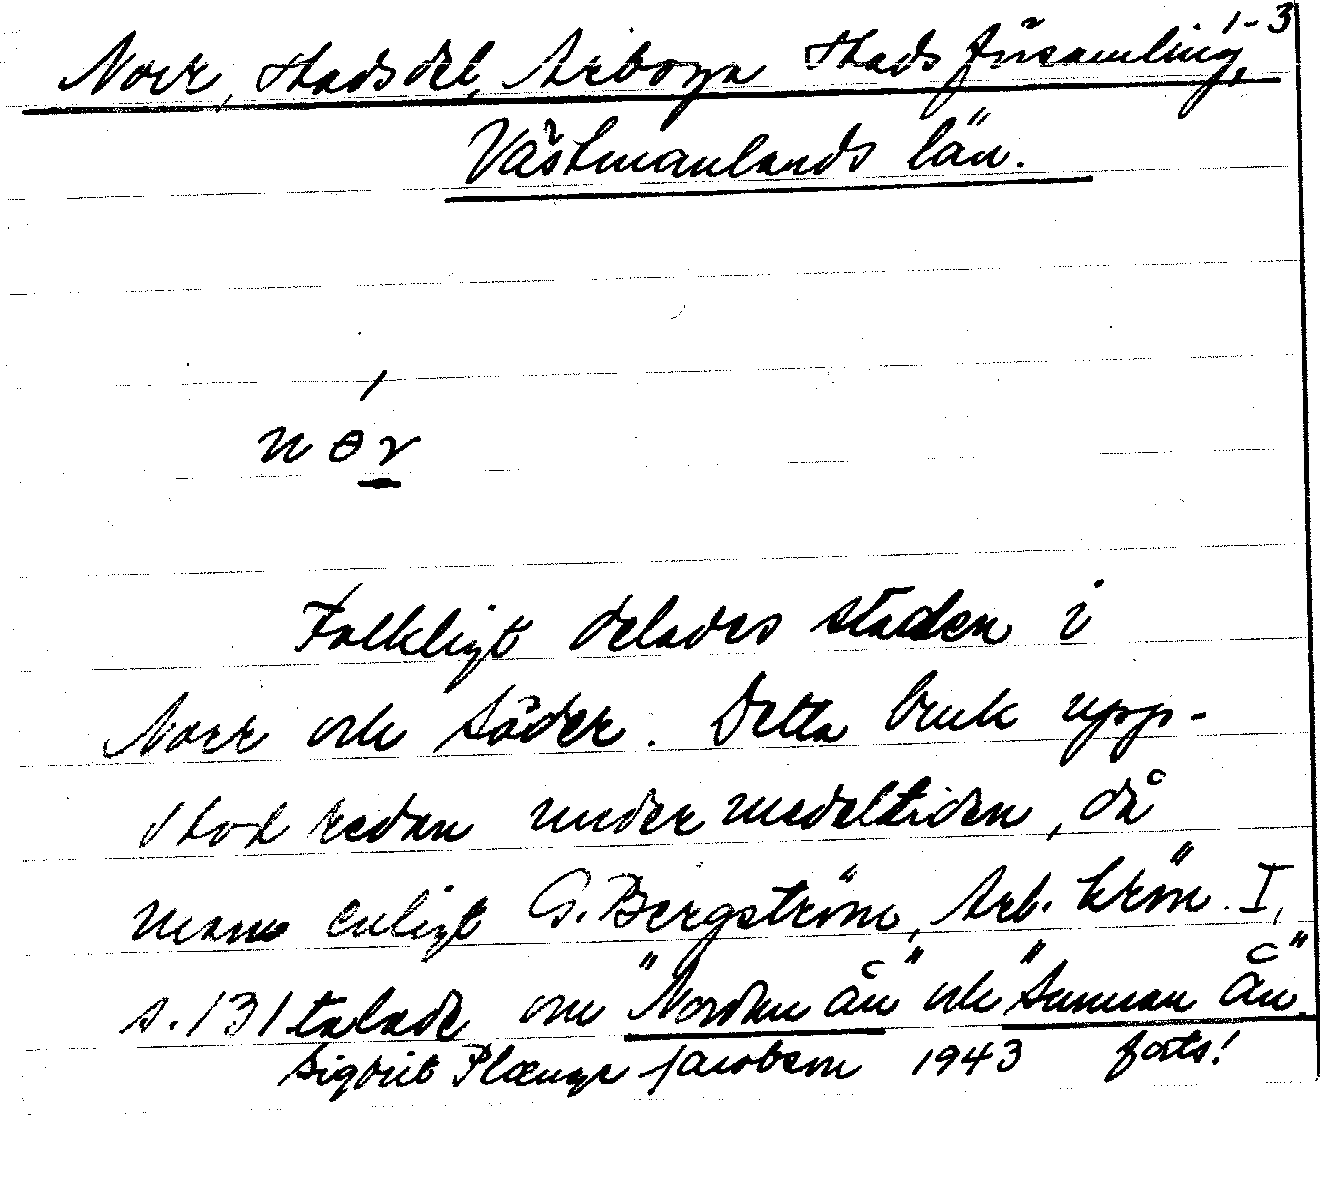 1-3
Norr, stadsdel, Arboga stadsförsamling,
Västmanlands län.
nör
Folkligt delades staden i
Norr och Söder. Detta bruk upp-
stod redan under medeltiden, då
man enligt G. Bergström, Arb. krön. I,
s. 131 talade om "Nordan ån" och "Sunnan ån".
Sigbrit Plænge Jacobson 1943 forts!